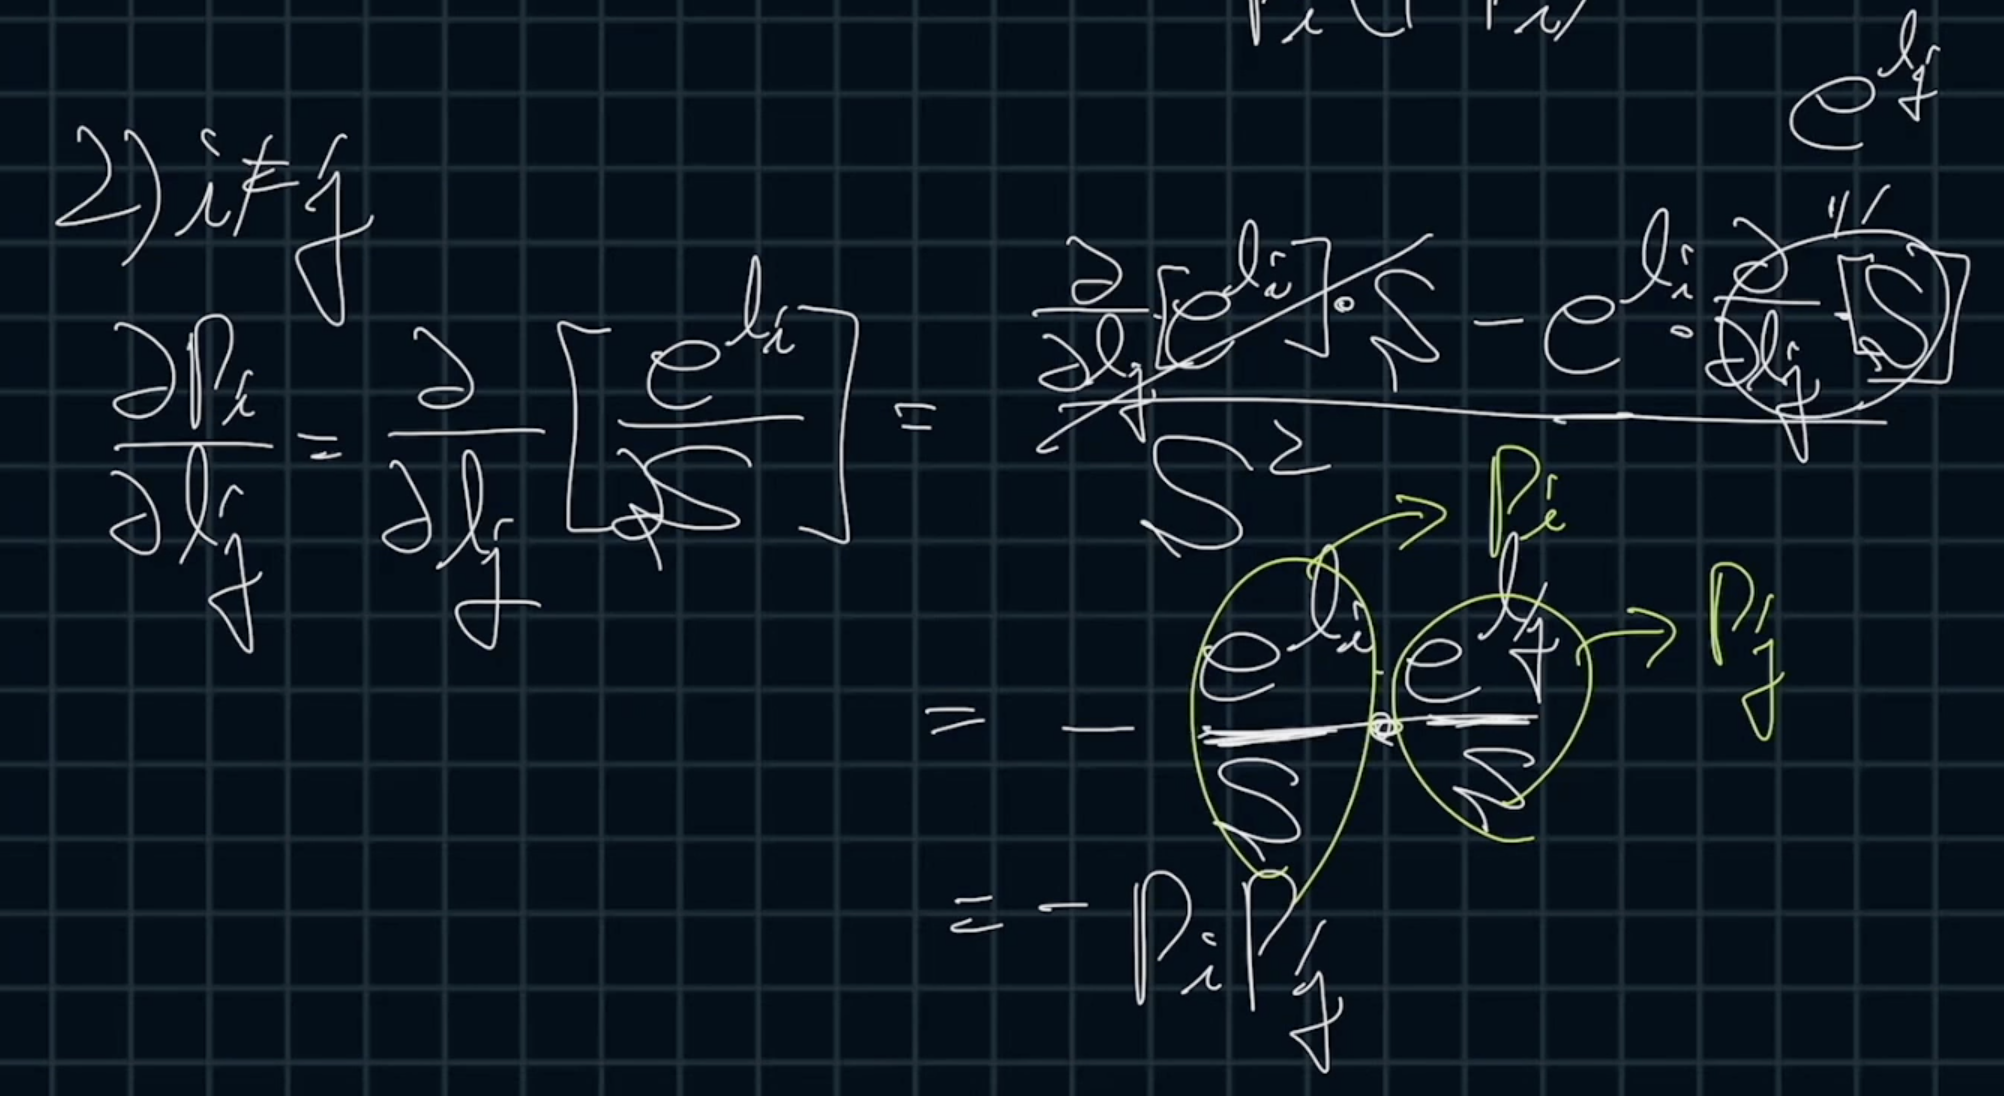 Pi(1-Pi)
e^{lj}
2) i≠j
∂Pi/∂lj = ∂/∂lj [e^{li}/S] = (∂/∂lj [e^{li}] · S - e^{li} · ∂/∂lj [S]) / S²
= - e^{li}/S · e^{lj}/S
→ Pi
→ Pj
= - PiPj